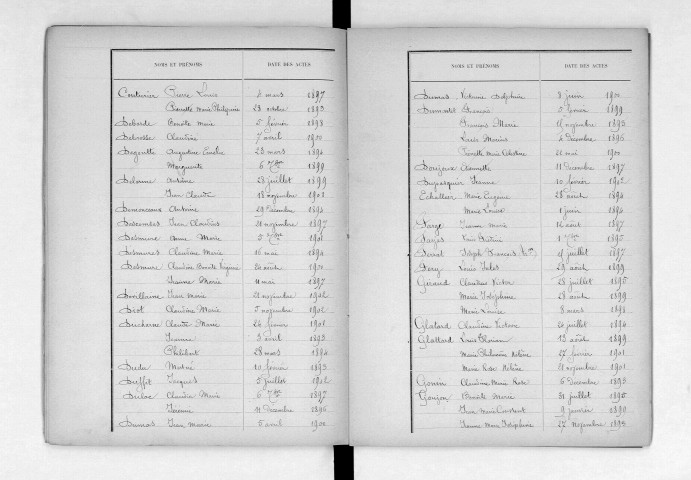 NOMS ET PRÉNOMS DATE DES ACTES
Couturier Pierre Louis 2 mars 1897
Pierrette Marie Philippine 23 octobre 1893
Deborde Benoite Marie 5 février 1898
Debrosse Claudine 7 avril 1900
Degoutte Augustine 23 mars 1894
Marguerite 6 1899
Delorme Antoine 28 juillet 1899
Jean Claude 18 novembre 1901
Demonceaux Antoine 29 décembre 1894
Descombes Jean Claudius 21 novembre 1897
Desmure Anne Marie 1901
Desmures Claudine Marie 16 mai 1894
Desmure Claudine Benoite 20 août 1900
Jeanne Marie 11 mai 1897
Jean Marie 21 novembre 1902
Diot Claudine Marie 5 novembre 1901
Ducharne Claude Marie 26 février 1901
Jeanne 3 août 1893
Philibert 28 mars 1894
10 février 1893
Jacques 3 juillet 1902
Duloc Claudia Marie 6 1897
Jeanne 11 décembre 1896
Dumas Jean Marie 5 avril 1900
NOMS ET PRÉNOMS DATE DES ACTES
Dumas Victorine Delphine 8 juin 1900
Dumontet François 5 février 1899
François Marie 15 novembre 1893
Louis Marius 2 décembre 1896
Pierrette Marie Célestine 21 mai 1900
11 décembre 1897
Duperquier Jeanne 10 février 1902
Echallier Marie Eugénie 28 août 1894
Marie Louise 1 juin 1894
Farge Jeanne Marie 12 août 1897
Farjas 1 1895
Ferrat Joseph François juillet 1897
Louis Jules 29 août 1899
Girard Claudius Victor 28 juillet 1895
Marie Joséphine 28 août 1899
Marie Louise 8 mars 1898
Glatard Claudine Victoire 20 juillet 1894
Glattard Louis 13 août 1899
Marie Philomène Hélène 27 février 1901
Marie Rose Hélène 21 novembre 1901
Gonin Claudine Marie Rose 6 décembre 1898
Goujon Benoite Marie 31 juillet 1895
Jean Marie Constant 9 janvier 1890
Jeanne Marie Joséphine 27 novembre 1894